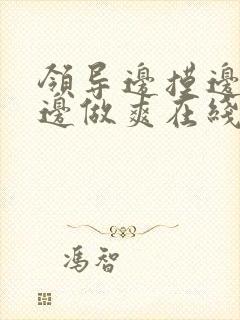 領导邊摸邊
邊做爽在綫
馮智